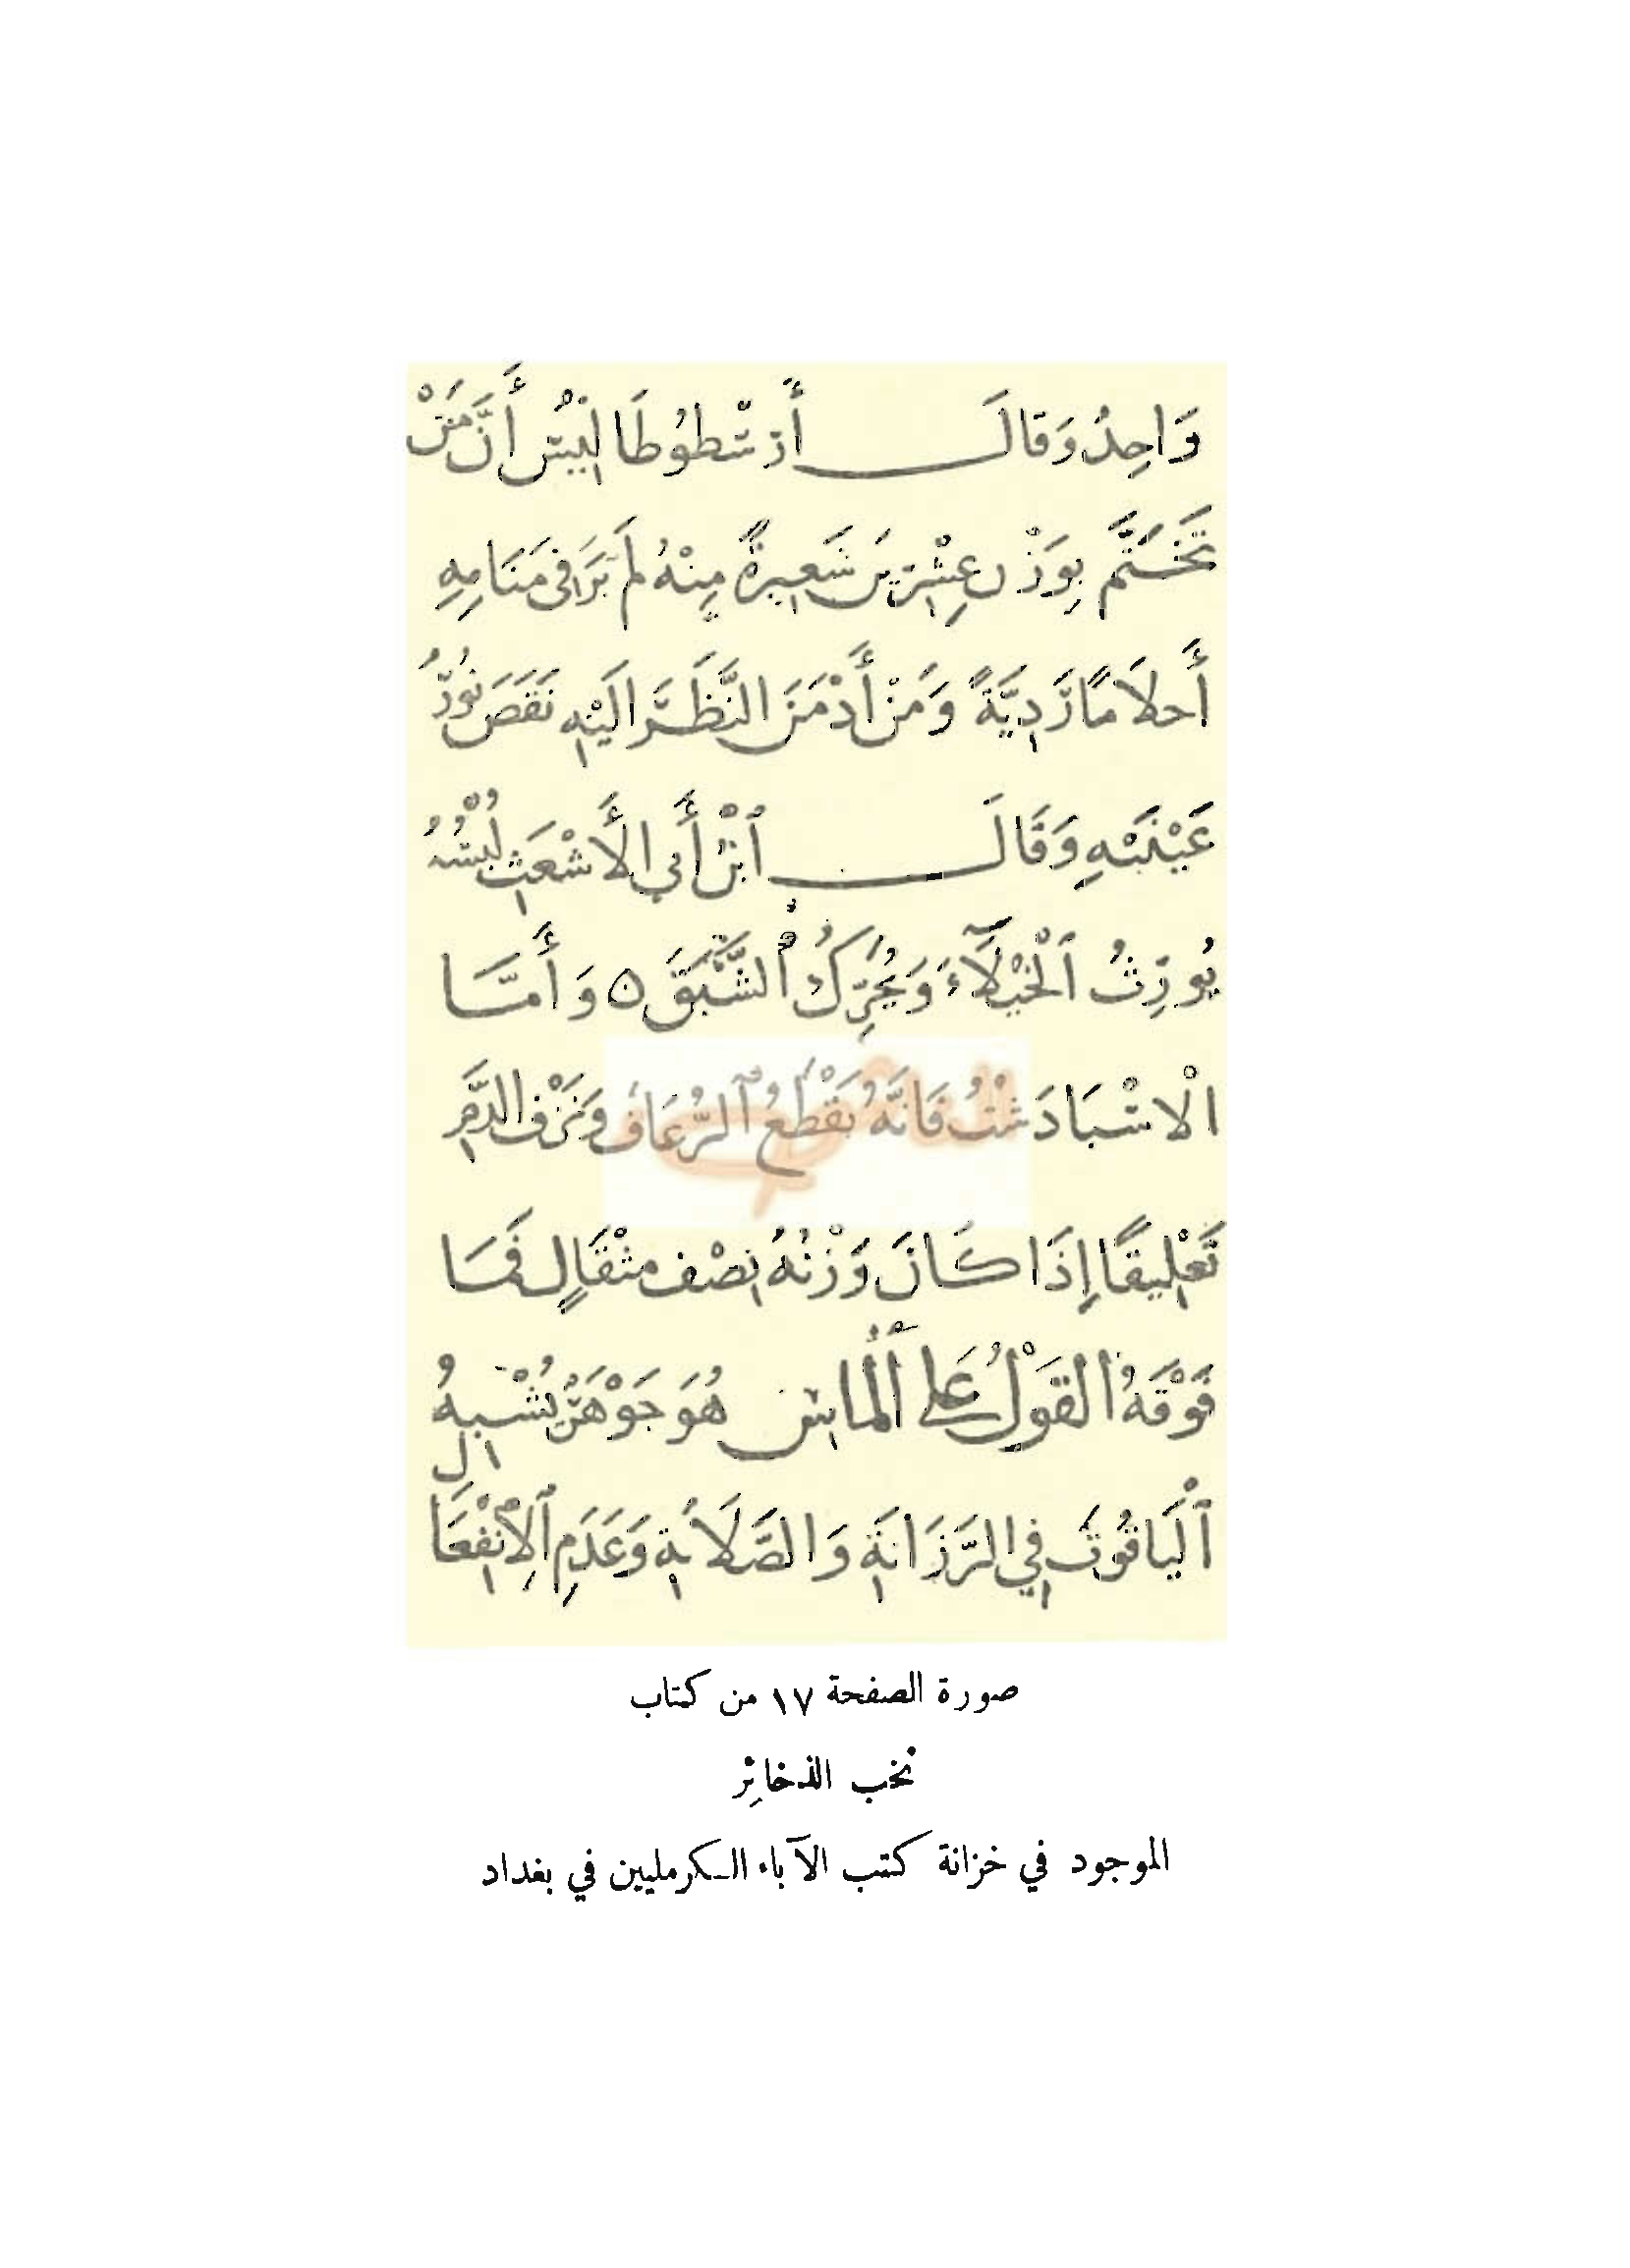 وَاحِدُ وَقَالَ أَرَسْطُوطَالِيْسُ أَنَّ مَنْ
تَخَتَّمَ بِوَزْنِ عِشْرِيَن شَعِيرَةً مِنْهُ لَمْ يَرَ فِى مَنَامِهِ
أَحلَامًا رَدِيَّةً وَمَنْ أَدْمَنَ النَّظَرَ اِلَيْهِ نَقَصَ نُورُ
عَيْنَيْهِ وَقَالَ ٱبْنُ أَبِي الأَشْعَثِ لُبْسُهُ
يُورِثُ ٱلْخُيَلَآءَ وَيُحَرِّكُ ٱلشَّبَقَ ه وَأَمَّا
الْاسْبَادَشْتُ فَانَّهُ يَقْطَعُ ٱلرُّعَافَ وَنَزْف الدَّمِ
تَعْلِيقًا إِذَا كَانَ وَزْنُهُ نِصْف مثْقَالٍ فَمَا
فَوْقَهُ القَوْلُ عَلَى ٱلْمَاسِ هُوَ جَوْهَرٌ يُشْبِهُ
ٱلْيَاقُوتَ فِي الرَّزَانَةِ وَالصَّلَابَةِ وَعَدَمِ ٱلْإِنْفِعَا
ل
صورة الصفحة ١٧ من كتاب
نخب الذخائِر
الموجود في خزانة كتب الآباء الكرمليين في بغداد